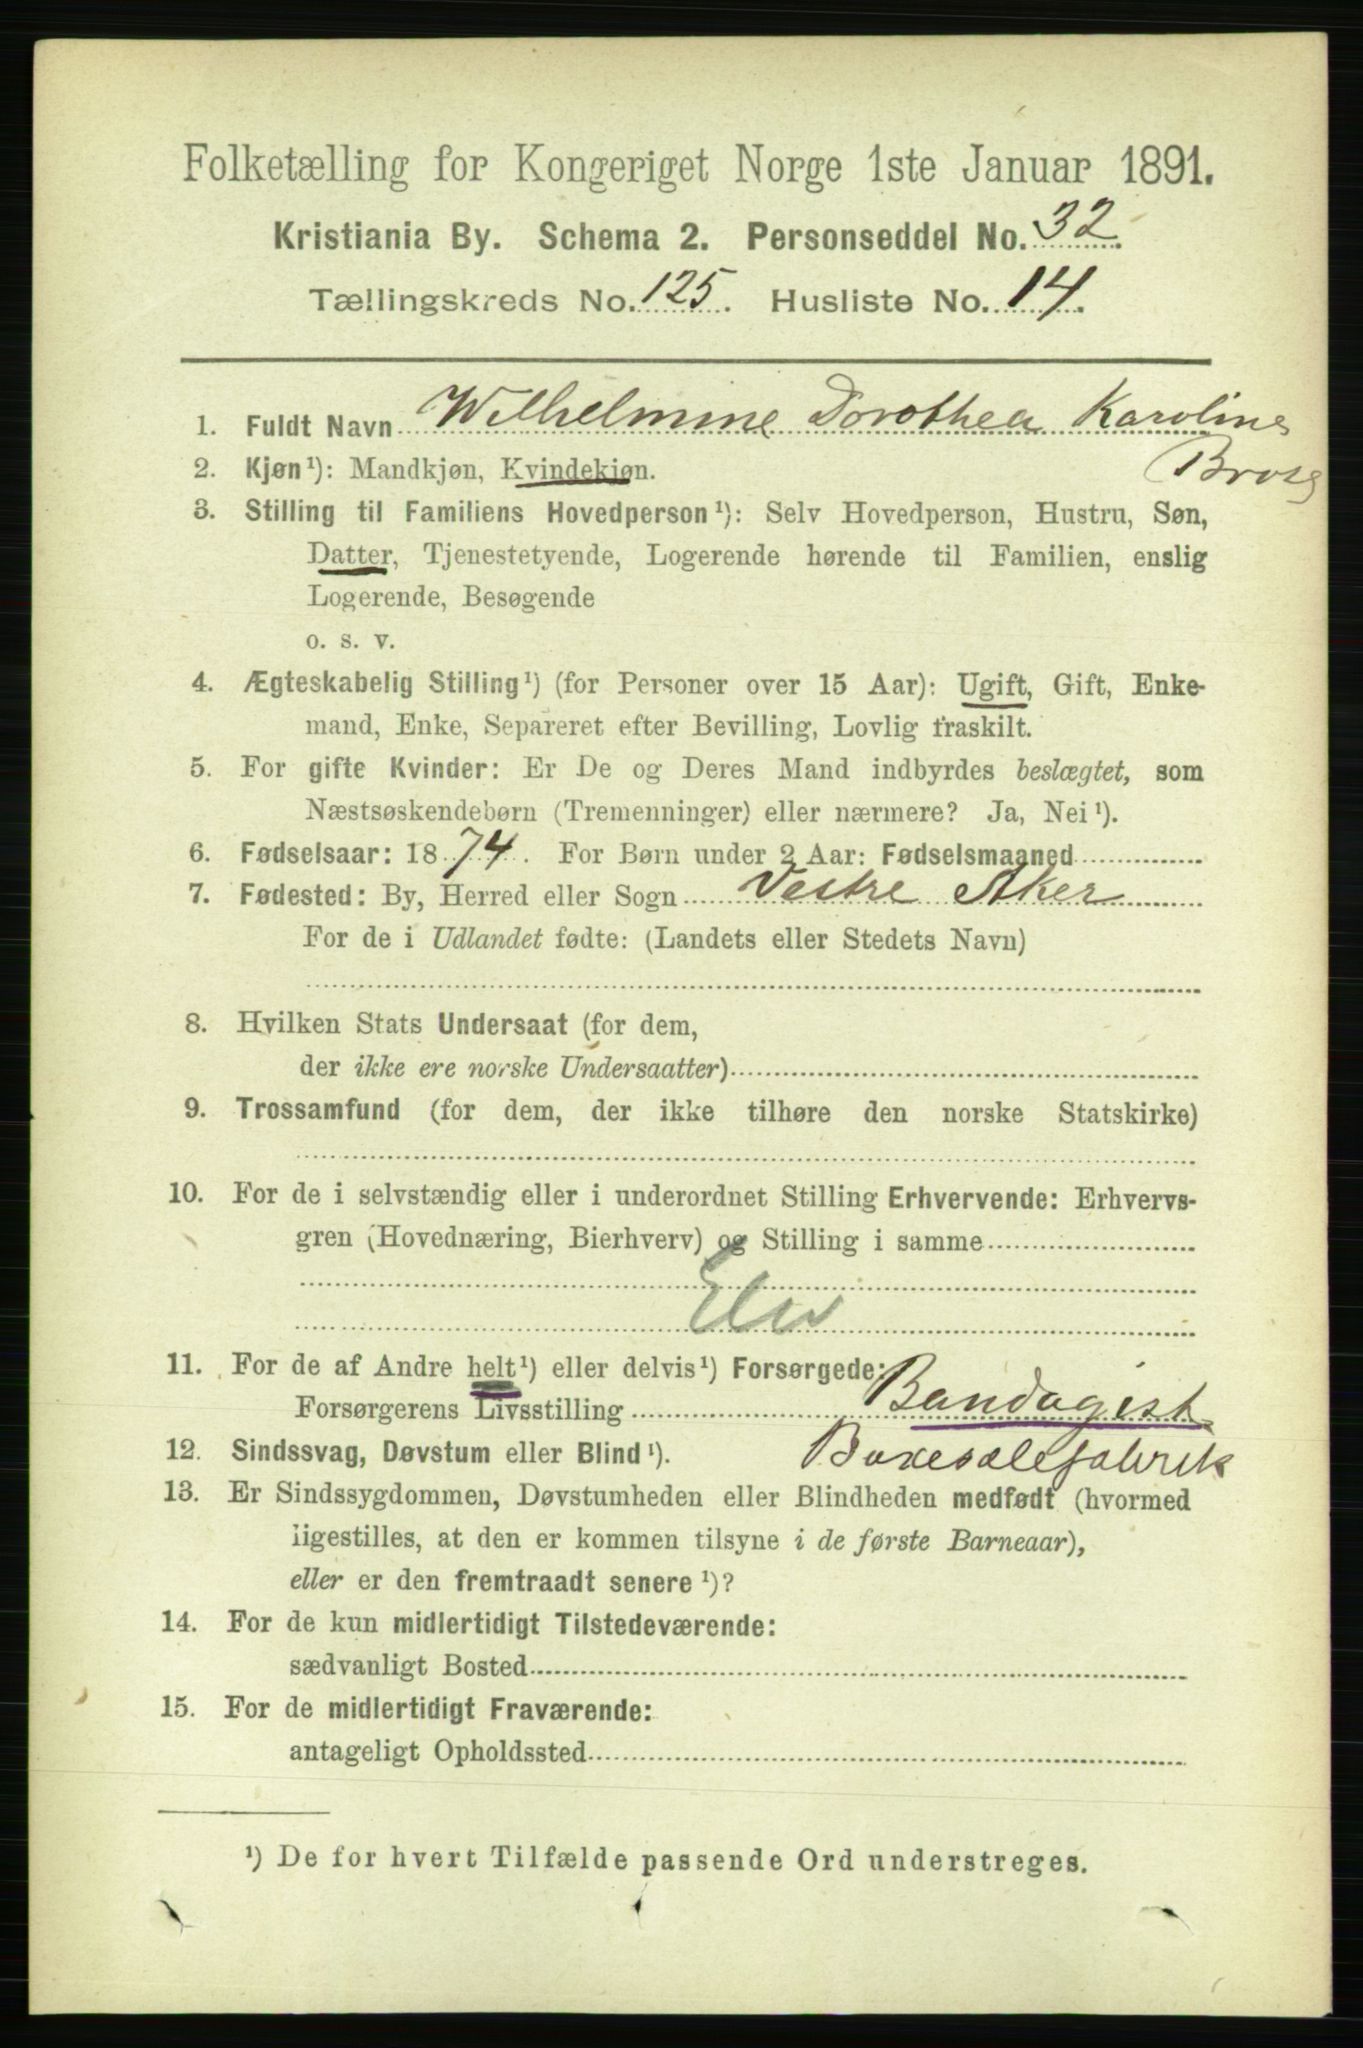 Folketælling for Kongeriget Norge 1ste Januar 1891.
Kristiania By. Schema 2. Personseddel No. 32.
Tællingskreds No. 125. Husliste No. 14.
1. Fuldt Navn Wilhelmine Dorothea Karoline
2. Kjøn ¹): Mandkjøn, Kvindekjøn. Brose
3. Stilling til Familiens Hovedperson ¹): Selv Hovedperson, Hustru, Søn,
Datter, Tjenestetyende, Logerende hørende til Familien, enslig
Logerende, Besøgende
o. s. v.
4. Ægteskabelig Stilling ¹) (for Personer over 15 Aar): Ugift, Gift, Enke-
mand, Enke, Separeret efter Bevilling, Lovlig fraskilt.
5. For gifte Kvinder: Er De og Deres Mand indbyrdes beslægtet, som
Næstsøskendebørn (Tremenninger) eller nærmere? Ja, Nei ¹).
6. Fødselsaar: 1874. For Børn under 2 Aar: Fødselsmaaned
7. Fødested: By, Herred eller Sogn Vestre Aker
For de i Udlandet fødte: (Landets eller Stedets Navn)
8. Hvilken Stats Undersaat (for dem,
der ikke ere norske Undersaatter)
9. Trossamfund (for dem, der ikke tilhøre den norske Statskirke)
10. For de i selvstændig eller i underordnet Stilling Erhvervende: Erhvervs-
gren (Hovednæring, Bierhverv) og Stilling i samme
Elev
11. For de af Andre helt ¹) eller delvis ¹) Forsørgede:
Forsørgerens Livsstilling Bandagist
12. Sindssvag, Døvstum eller Blind ¹). Buxeselefabrik
13. Er Sindssygdommen, Døvstumheden eller Blindheden medfødt (hvormed
ligestilles, at den er kommen tilsyne i de første Barneaar),
eller er den fremtraadt senere ¹)?
14. For de kun midlertidigt Tilstedeværende:
sædvanligt Bosted
15. For de midlertidigt Fraværende:
antageligt Opholdssted
¹) De for hvert Tilfælde passende Ord understreges.